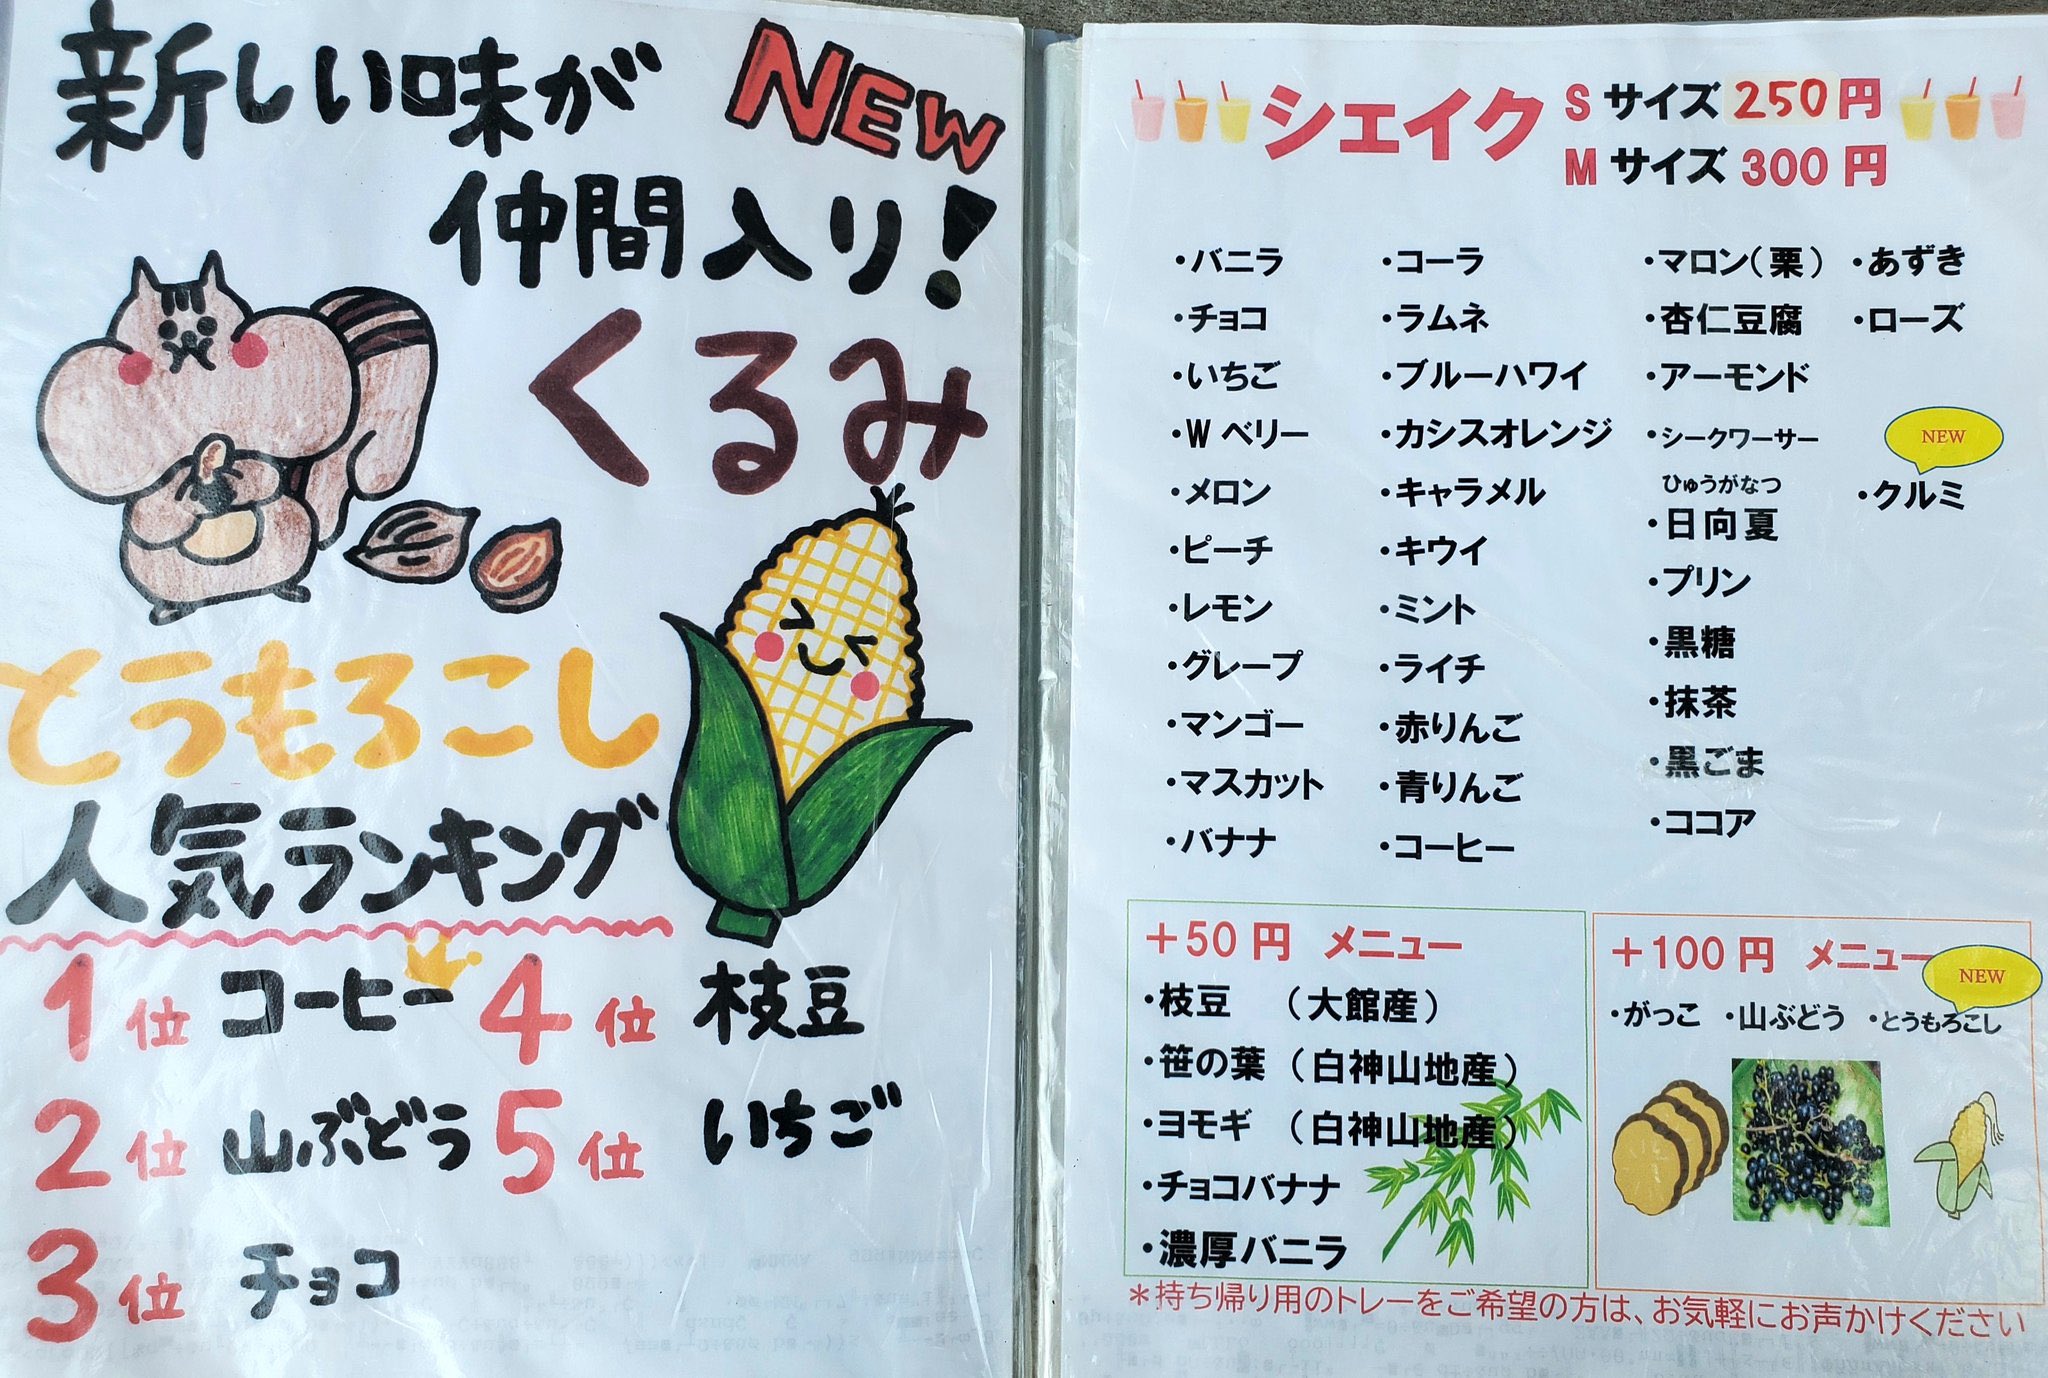 新しい味が
NEW
仲間入り!
くるみ
とうもろこし
人気ランキング
1位 コーヒー
2位 山ぶどう
3位 チョコ
4位 枝豆
5位 いちご
シェイク
S サイズ 250円
M サイズ 300円
・バニラ
・チョコ
・いちご
・W ベリー
・メロン
・ピーチ
・レモン
・グレープ
・マンゴー
・マスカット
・バナナ
・コーラ
・ラムネ
・ブルーハワイ
・カシスオレンジ
・キャラメル
・キウイ
・ミント
・ライチ
・赤りんご
・青りんご
・コーヒー
・マロン(栗)
・杏仁豆腐
・アーモンド
・シークワーサー
ひゅうがなつ
・日向夏
・プリン
・黒糖
・抹茶
・黒ごま
・ココア
・あずき
・ローズ
NEW
・クルミ
+50円 メニュー
・枝豆 (大館産)
・笹の葉 (白神山地産)
・ヨモギ (白神山地産)
・チョコバナナ
・濃厚バニラ
+100円 メニュー
NEW
・がっこ ・山ぶどう ・とうもろこし
*持ち帰り用のトレーをご希望の方は、お気軽にお声かけください